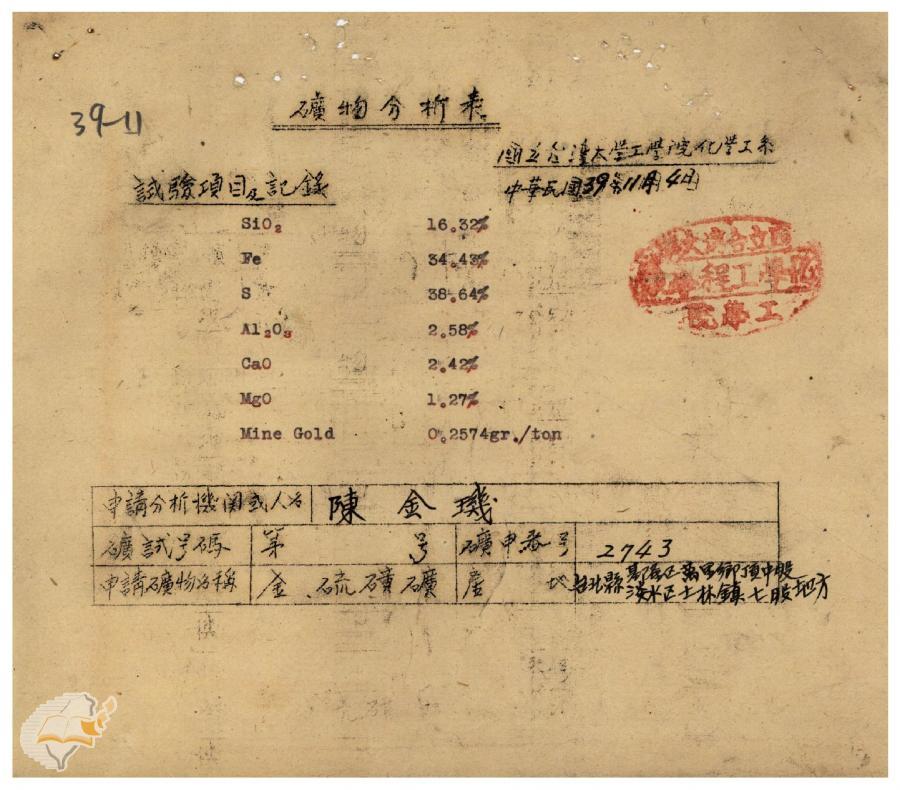 39-11
礦物分析表
國立台灣大學工學院化學工系
中華民國39年11月4日
試驗項目及記錄
SiO₂ 16.32%
Fe 34.43%
S 38.64%
Al₂O₃ 2.58%
CaO 2.42%
MgO 1.27%
Mine Gold 0.2574gr./ton
國立台灣大學
化學工程學系
工學院
申請分析機関或人名 陳金璣
礦試号碼 第 号 礦申忝号 2743
申請礦物名稱 金、硫磺礦 產地 台北縣
基隆区萬里鄉頂中股
淡水区士林鎮七股地方